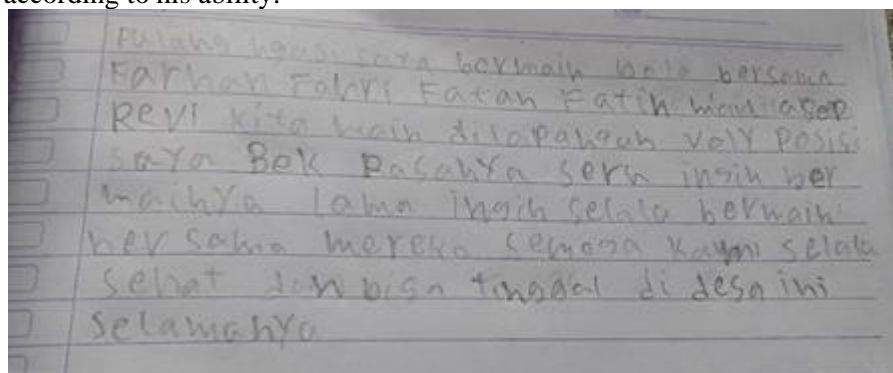 according to his ability.
Pulang ngasi saya bermain bola bersama
Farhan Fahri Fatan Fatih asep
Revi kita main dilapangan volY Posisi
saYa Bek RasahYa seru ingin ber
mainYa lama ingin selalu bermain
bersama mereka semoga kami selalu
sehat dan bisa tinggal di desa ini
selamanYa